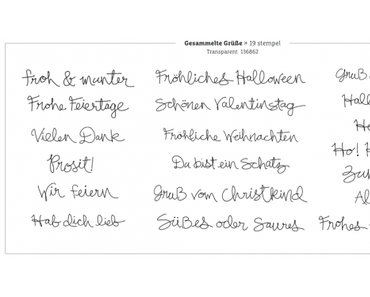 Gesammelte Grüße • 19 stempel
Transparent 136862
froh & munter
Frohe Feiertage
Vielen Dank
Prosit!
Wir feiern
Hab dich lieb
Fröhliches Halloween
Schönen Valentinstag
Fröhliche Weihnachten
Du bist ein Schatz
Gruß vom Christkind
Süßes oder Saures
Gruß
Ho!
Frohes